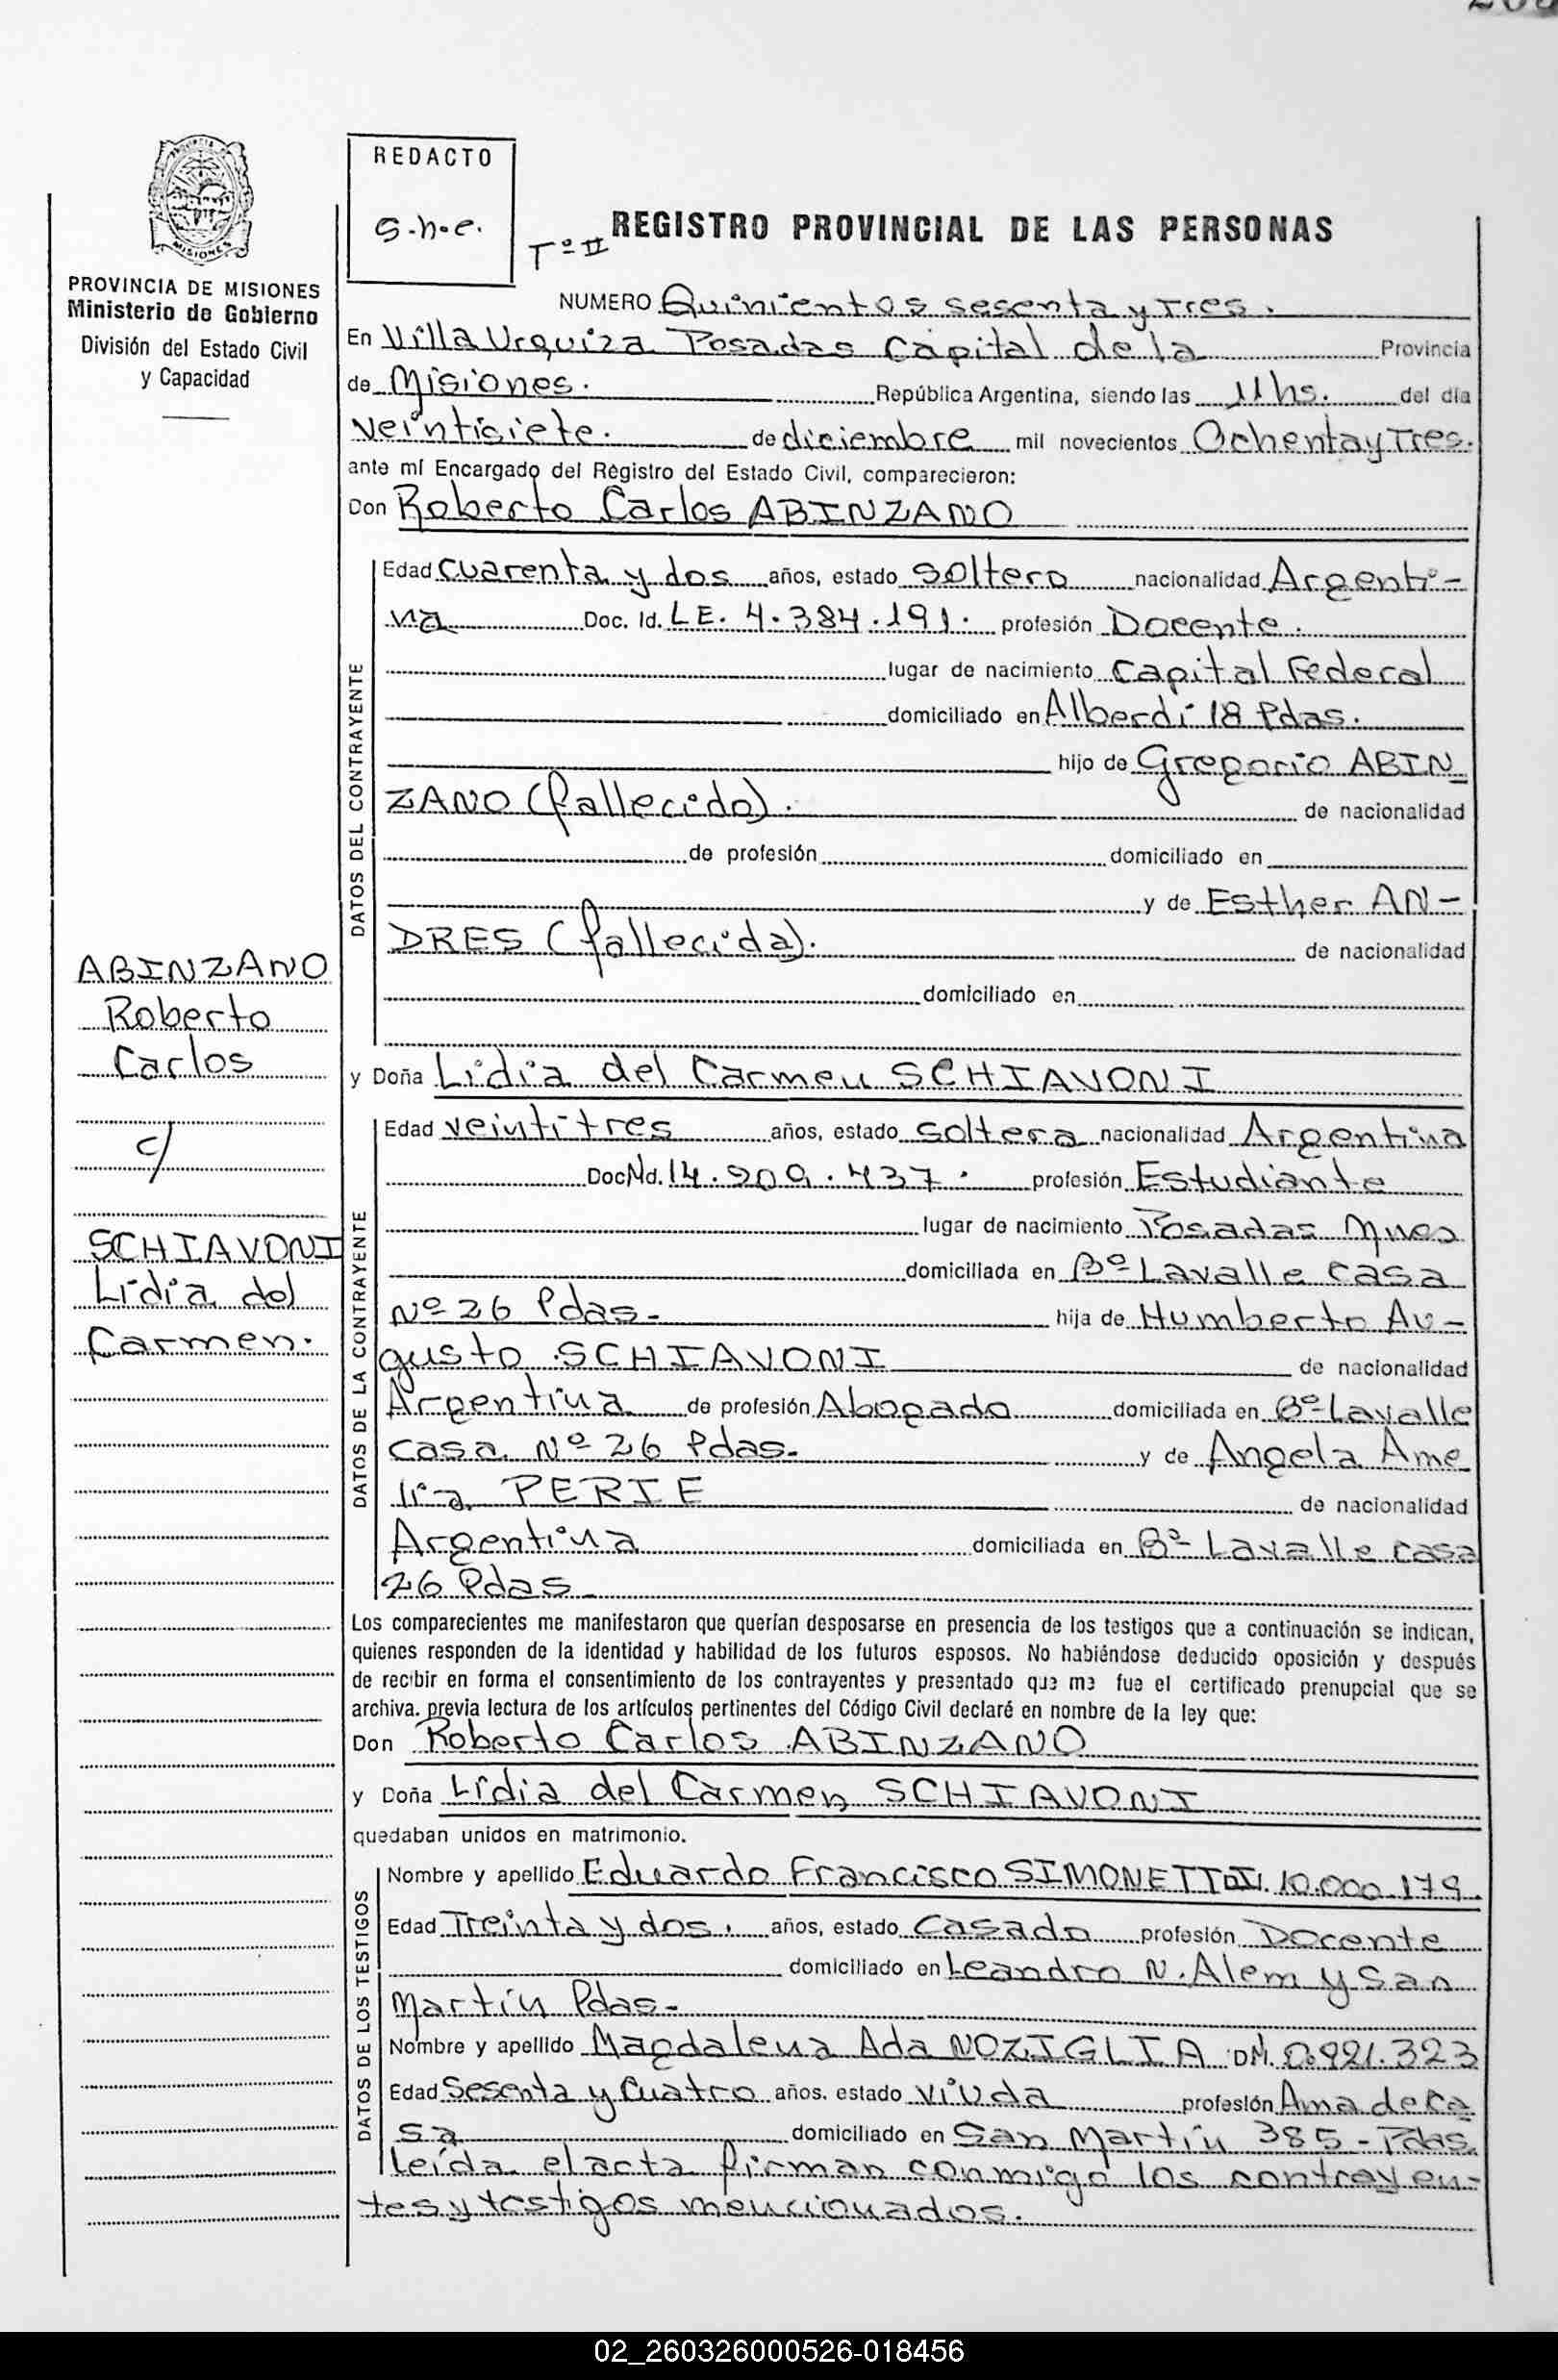 REDACTO
S.h.e.
Tº II
REGISTRO PROVINCIAL DE LAS PERSONAS
PROVINCIA DE MISIONES
Ministerio de Gobierno
División del Estado Civil
y Capacidad
NUMERO Quinientos sesenta y Tres.
En Villa Urquiza Posadas Capital de la Provincia
de Misiones. República Argentina, siendo las 11 hs. del día
veintisiete. de diciembre mil novecientos Ochenta y Tres.
ante mí Encargado del Registro del Estado Civil, comparecieron:
Don Roberto Carlos ABINZANO
DATOS DEL CONTRAYENTE
Edad cuarenta y dos años, estado soltero nacionalidad Argenti-
na Doc. Id. LE. 4.384.191. profesión Docente.
lugar de nacimiento Capital Federal
domiciliado en Alberdi 18 Pdas.
hijo de Gregorio ABIN
ZANO (fallecido). de nacionalidad
de profesión domiciliado en
y de Esther AN-
DRES (fallecida). de nacionalidad
domiciliado en
ABINZANO
Roberto
Carlos
c/
SCHIAVONI
Lidia del
Carmen.
y Doña Lidia del Carmen SCHIAVONI
DATOS DE LA CONTRAYENTE
Edad veintitres años, estado soltera nacionalidad Argentina
Doc Nd. 14.209.437. profesión Estudiante
lugar de nacimiento Posadas Mnes
domiciliada en Bº Lavalle casa
Nº 26 Pdas. hija de Humberto Au-
gusto SCHIAVONI de nacionalidad
Argentina de profesión Abogado domiciliada en Bº Lavalle
casa Nº 26 Pdas. y de Angela Ame
lia PERIE de nacionalidad
Argentina domiciliada en Bº Lavalle casa
26 Pdas
Los comparecientes me manifestaron que querían desposarse en presencia de los testigos que a continuación se indican,
quienes responden de la identidad y habilidad de los futuros esposos. No habiéndose deducido oposición y después
de recibir en forma el consentimiento de los contrayentes y presentado que me fue el certificado prenupcial que se
archiva. previa lectura de los artículos pertinentes del Código Civil declaré en nombre de la ley que:
Don Roberto Carlos ABINZANO
y Doña Lidia del Carmen SCHIAVONI
quedaban unidos en matrimonio.
DATOS DE LOS TESTIGOS
Nombre y apellido Eduardo Francisco SIMONETTI DI. 10.000.179.
Edad Treinta y dos. años, estado Casado profesión Docente
domiciliado en Leandro N. Alem y San
Martín Pdas-
Nombre y apellido Magdalena Ada NOZIGLIA DNI. 0.921.323
Edad Sesenta y Cuatro años. estado viuda profesión Ama de Ca
sa domiciliado en San Martín 385 - Pdas.
Leída el acta firman conmigo los contrayen-
tes y testigos mencionados.
02_260326000526-018456